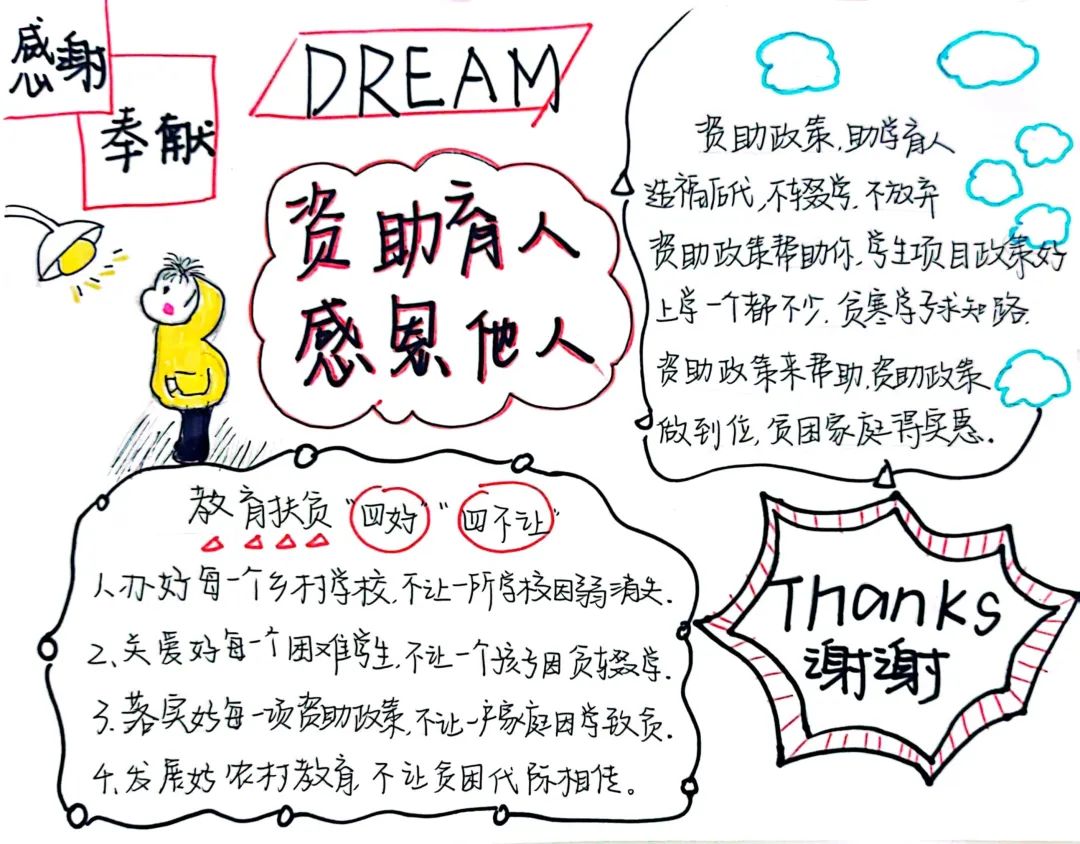 感谢
奉献
DREAM
资助育人
感恩他人
资助政策,助学育人
造福后代,不辍学,不放弃
资助政策帮助你,学生项目政策好
上学一个都不少,贫寒学子求知路.
资助政策来帮助,资助政策
做到位,贫困家庭得实惠.
教育扶贫“四好”“四不让”
1、办好每一个乡村学校,不让一所学校因弱消失.
2、关爱好每一个困难学生,不让一个孩子因贫辍学.
3、落实好每一项资助政策,不让一户家庭因学致贫.
4、发展好农村教育,不让贫困代际相传。
Thanks
谢谢